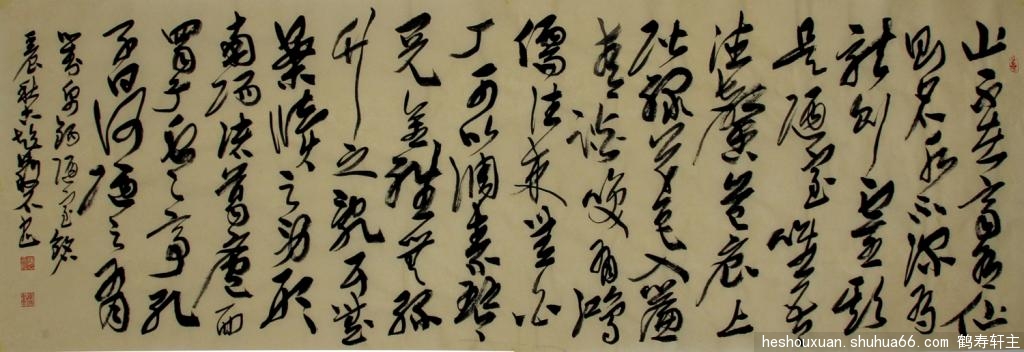 山不在高有仙
则名水不深有
龍则靈斯
是陋室惟吾
德馨苔痕上
阶绿草色入簾
青談笑有鸿
儒往来無白
丁可以调素琴
阅金經無丝
竹之乱耳無
案牍之劳形
南陽诸葛庐西
蜀子云之亭孔
子曰何陋之有
刘禹錫陋室銘
heshouxuan.shuhua66.com 鹤寿轩主